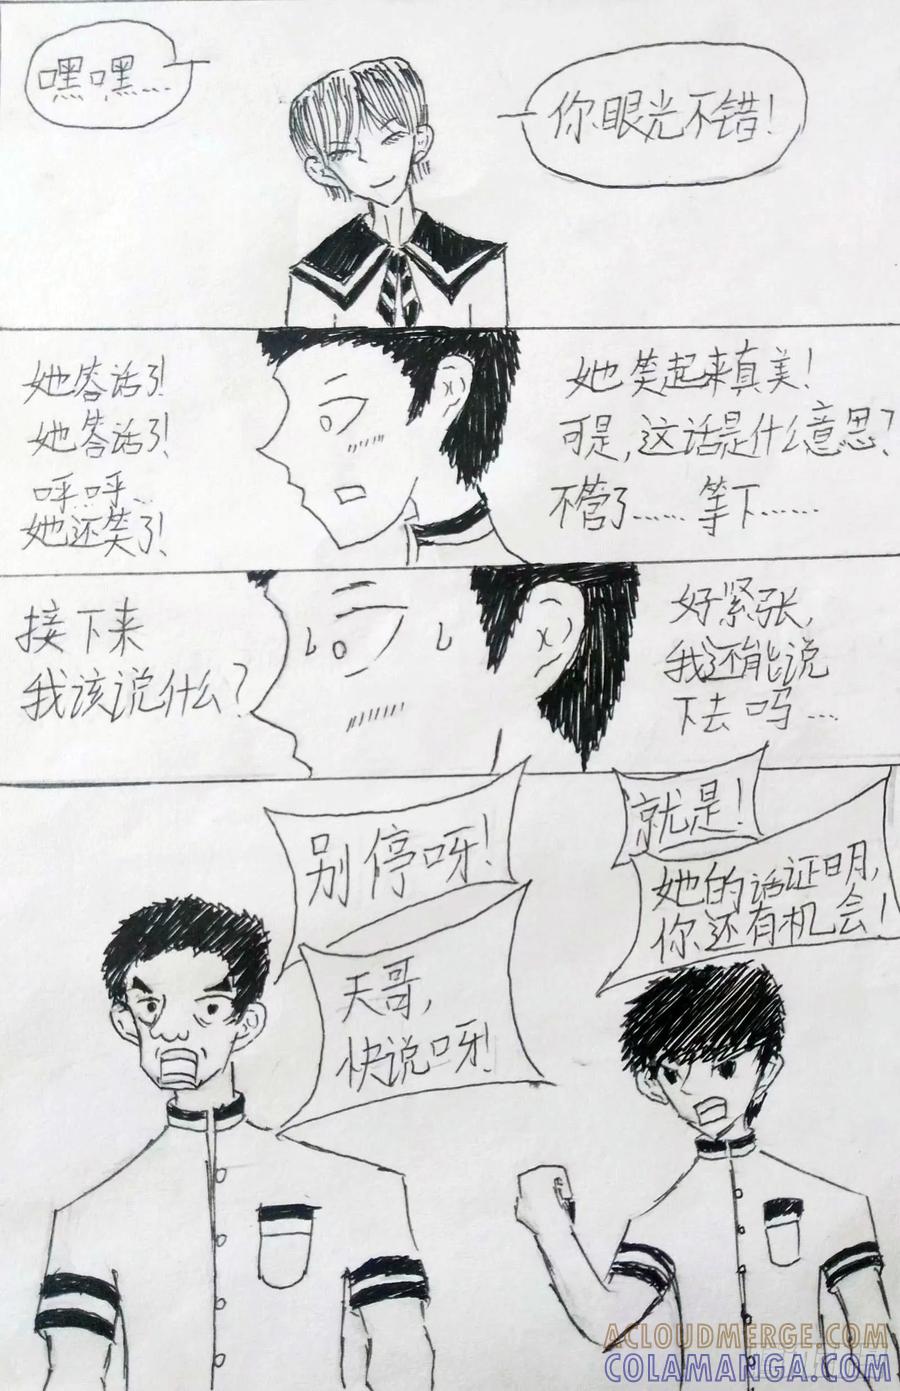 嘿嘿……
你眼光不错！
她答话了！
她答话了！
呼呼…
她还笑了！
她笑起来真美！
可是，这话是什么意思？
不管了…… 等下……
接下来
我该说什么？
好紧张，
我还能说
下去吗…
别停呀！
天哥，
快说呀！
就是！
她的话证明，
你还有机会！
ACLOUDMERGE.COM
COLAMANGA.COM